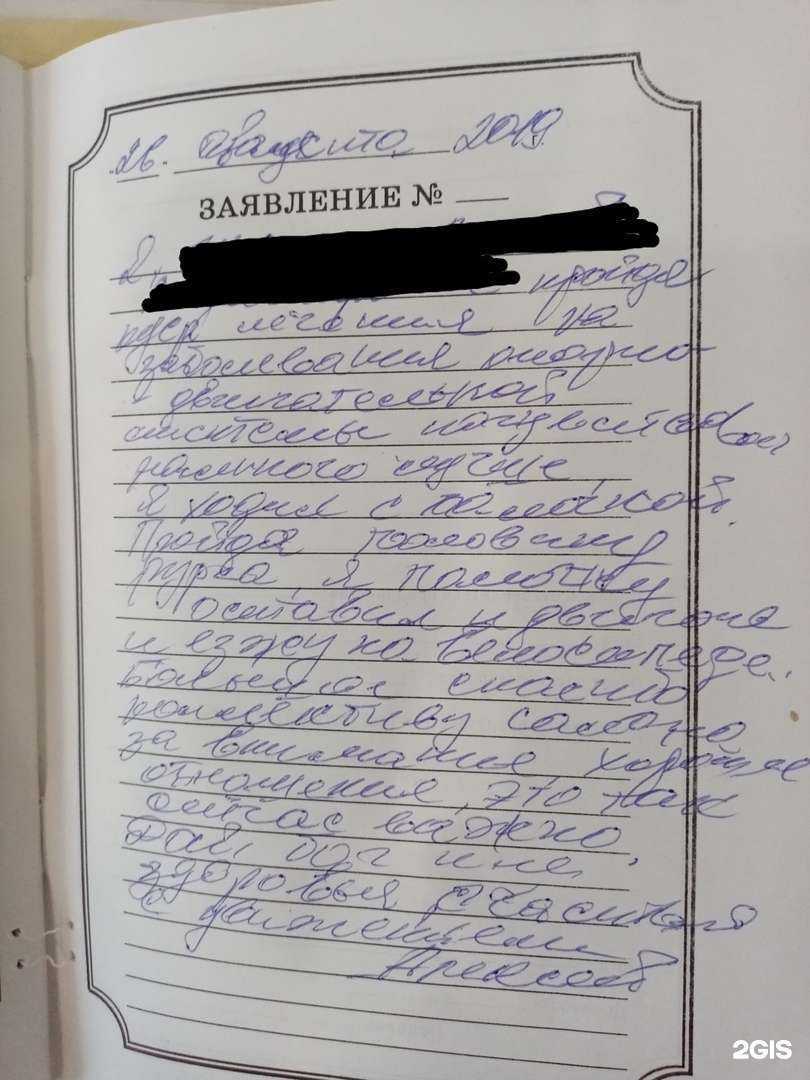 26. августа 2019г.
ЗАЯВЛЕНИЕ №
Я
пройдя
курс лечения на
заболевания опорно
двигательной
системы почувствовал
намного лучше,
Я ходил с палочкой.
Пройдя половину
курса, я палочку
оставил и
и езжу на велосипеде.
Большое спасибо
коллективу салона
за внимания, хорошие
отношения, это так
сейчас важно.
Дай бог им
здоровья счастья
С уважением